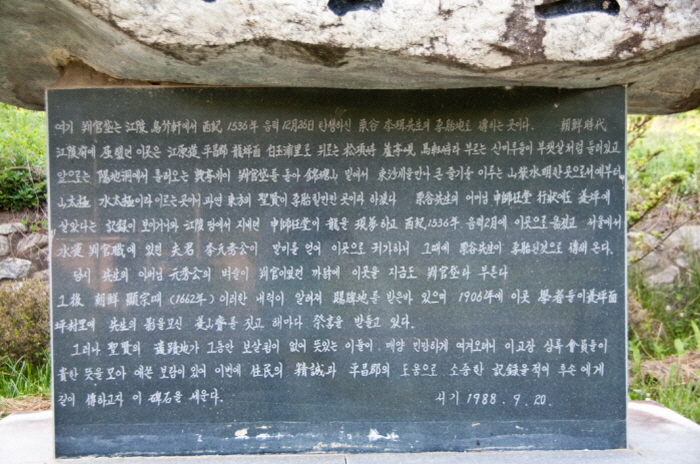 여기 判官垈는 江陵 烏竹軒에서 西紀 1536年 음력 12月26日 탄생하신 栗谷 李珥先生의 孕胎地로 傳하는 곳이다. 朝鮮時代
江陵府에 屬했던 이곳은 江原道 平昌郡 龍坪面 白玉浦里로 뒤로는 松嶺 부르는 산마루들이 둘러있고
앞으로는 陽地洞에서 흘러오는 判官垈를 돌아 밑에서 큰 줄기를 이루는 山紫水明한 곳으로서 예부터
山太極 水太極이라 이르는 곳이라 과연 東方의 聖賢이 孕胎될만한 곳이라 하겠다. 栗谷先生의 어머님 申師任堂 行狀에도 蓬坪에
살았다는 記錄이 보이거니와 江陵 땅에서 지내던 申師任堂이 龍을 現夢하고 西紀 1536年 음력2月에 이곳으로 옮겼고 서울에서
水運 判官職에 있던 夫君 李元秀公이 말미를 얻어 이곳으로 귀가하니 그때에 栗谷先生이 孕胎된것으로 傳해 온다.
당시 先生의 아버님 元秀公의 벼슬이 判官이였던 까닭에 이곳을 지금도 判官垈라 부른다
그後 朝鮮 顯宗때 (1662年) 이러한 내력이 알려져 賜牌地를 받은바 있으며 1906年에 이곳 學者들이 蓬坪面
坪村里에 先生의 影을모신 奉山齋를 짓고 해마다 祭享을 받들고 있다.
그러나 聖賢의 遺蹟地가 그동안 보살핌이 없어 뜻있는 이들이 매양 민망하게 여겨오더니 이고장 會員들이
귀한 뜻을모아 애쓴 보람이 있어 이번에 住民의 精誠과 平昌郡의 도움으로 소중한 記錄을적어 후손에게
길이 傳하고자 이 碑石을 세운다. 서기 1988. 9. 20.